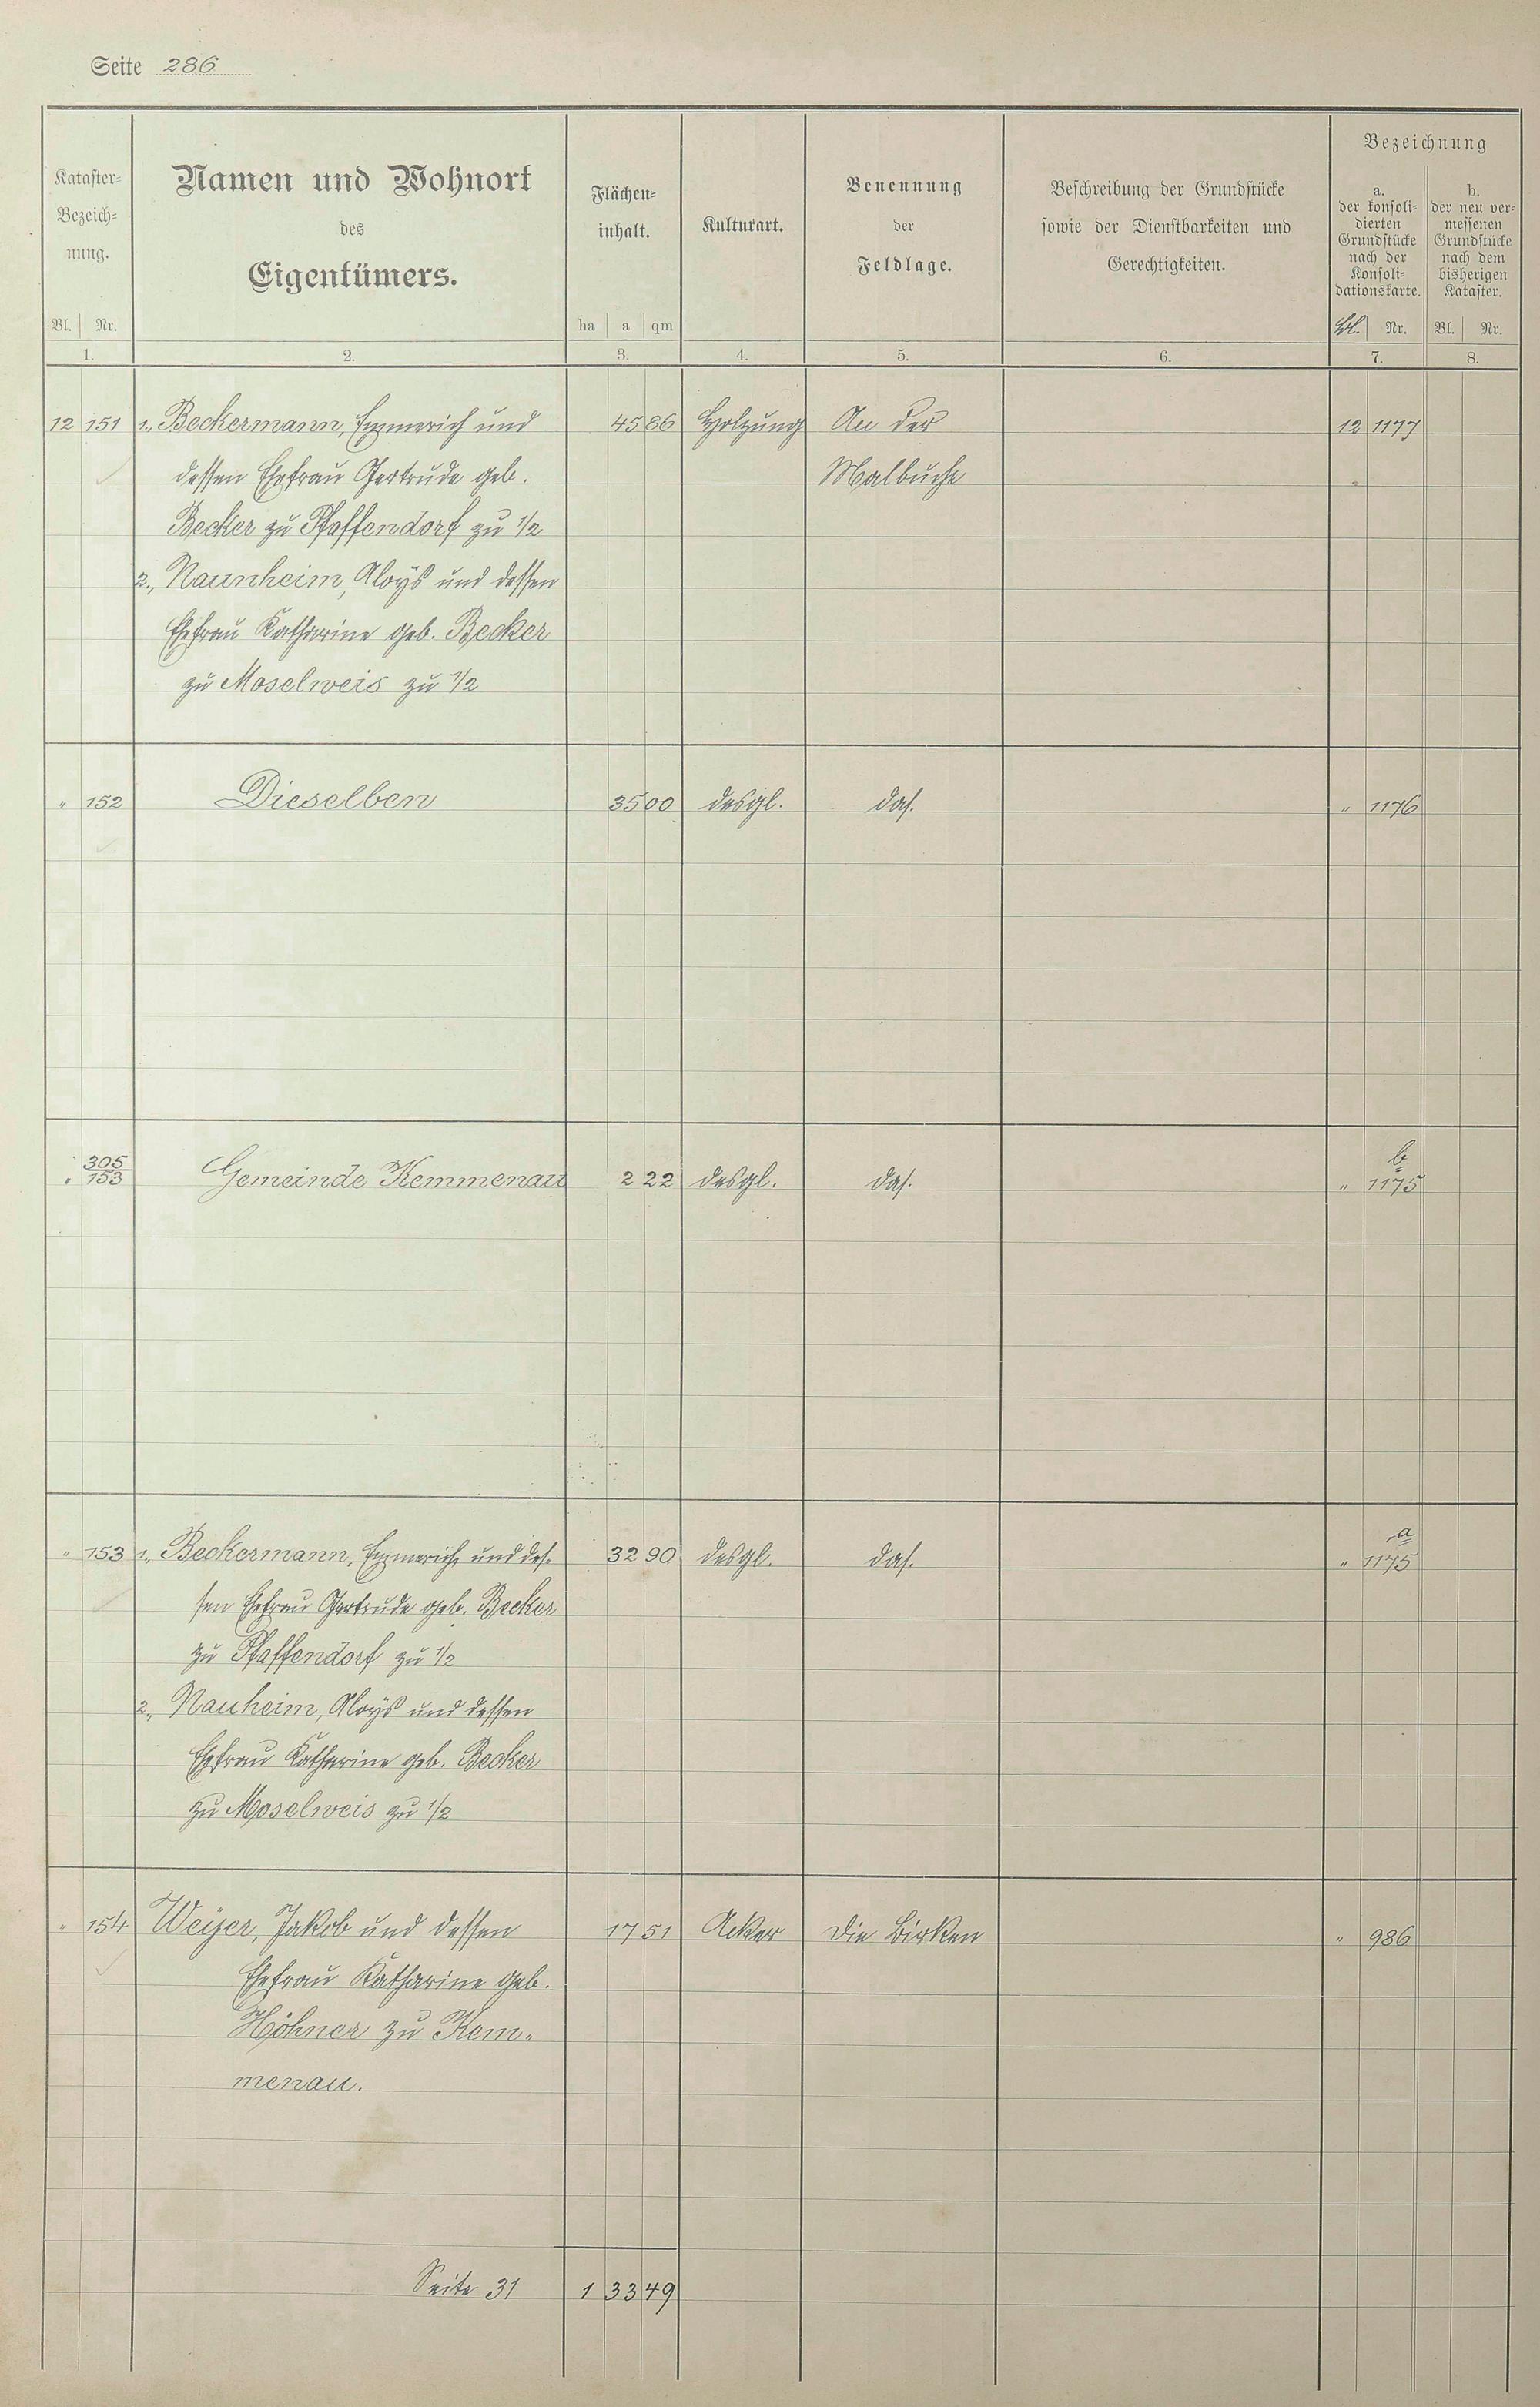 Seite 286
Kataster-
Bezeich-
nung.
Bl. Nr.
1.
Namen und Wohnort
des
Eigentümers.
2.
Flächen-
inhalt.
ha a qm
3.
Kulturart.
4.
Benennung
der
Feldlage.
5.
Beschreibung der Grundstücke
sowie der Dienstbarkeiten und
Gerechtigkeiten.
6.
Bezeichnung
a.
der konsoli-
dierten
Grundstücke
nach der
Konsoli-
dationskarte.
Bl. Nr.
7.
b.
der neu ver-
messenen
Grundstücke
nach dem
bisherigen
Kataster.
Bl. Nr.
8.
12 151 1., Beckermann, Emmerich und 45 86 Holzung An der 12 1177
dessen Ehefrau Gertrude geb. Malbuche
Becker zu Pfaffendorf zu 1/2
2., Naunheim, Aloÿs und dessen
Ehefrau Katharine geb. Becker
zu Moselweis zu 1/2
" 152 Dieselben 35 00 desgl. das. " 1176
" 305/153 Gemeinde Kemmenau 2 22 desgl. das. " b 1175
" 153 1., Beckermann, Emmerich und des- 32 90 desgl. das. " a 1175
sen Ehefrau Gertrude geb. Becker
zu Pfaffendorf zu 1/2
2., Nauheim, Aloÿs und dessen
Ehefrau Katharine geb. Becker
zu Moselweis zu 1/2
" 154 Weyer, Jakob und dessen 17 51 Acker Die Birken " 986
Ehefrau Katharine geb.
Höhner zu Kem-
menau.
Seite 31 1 33 49